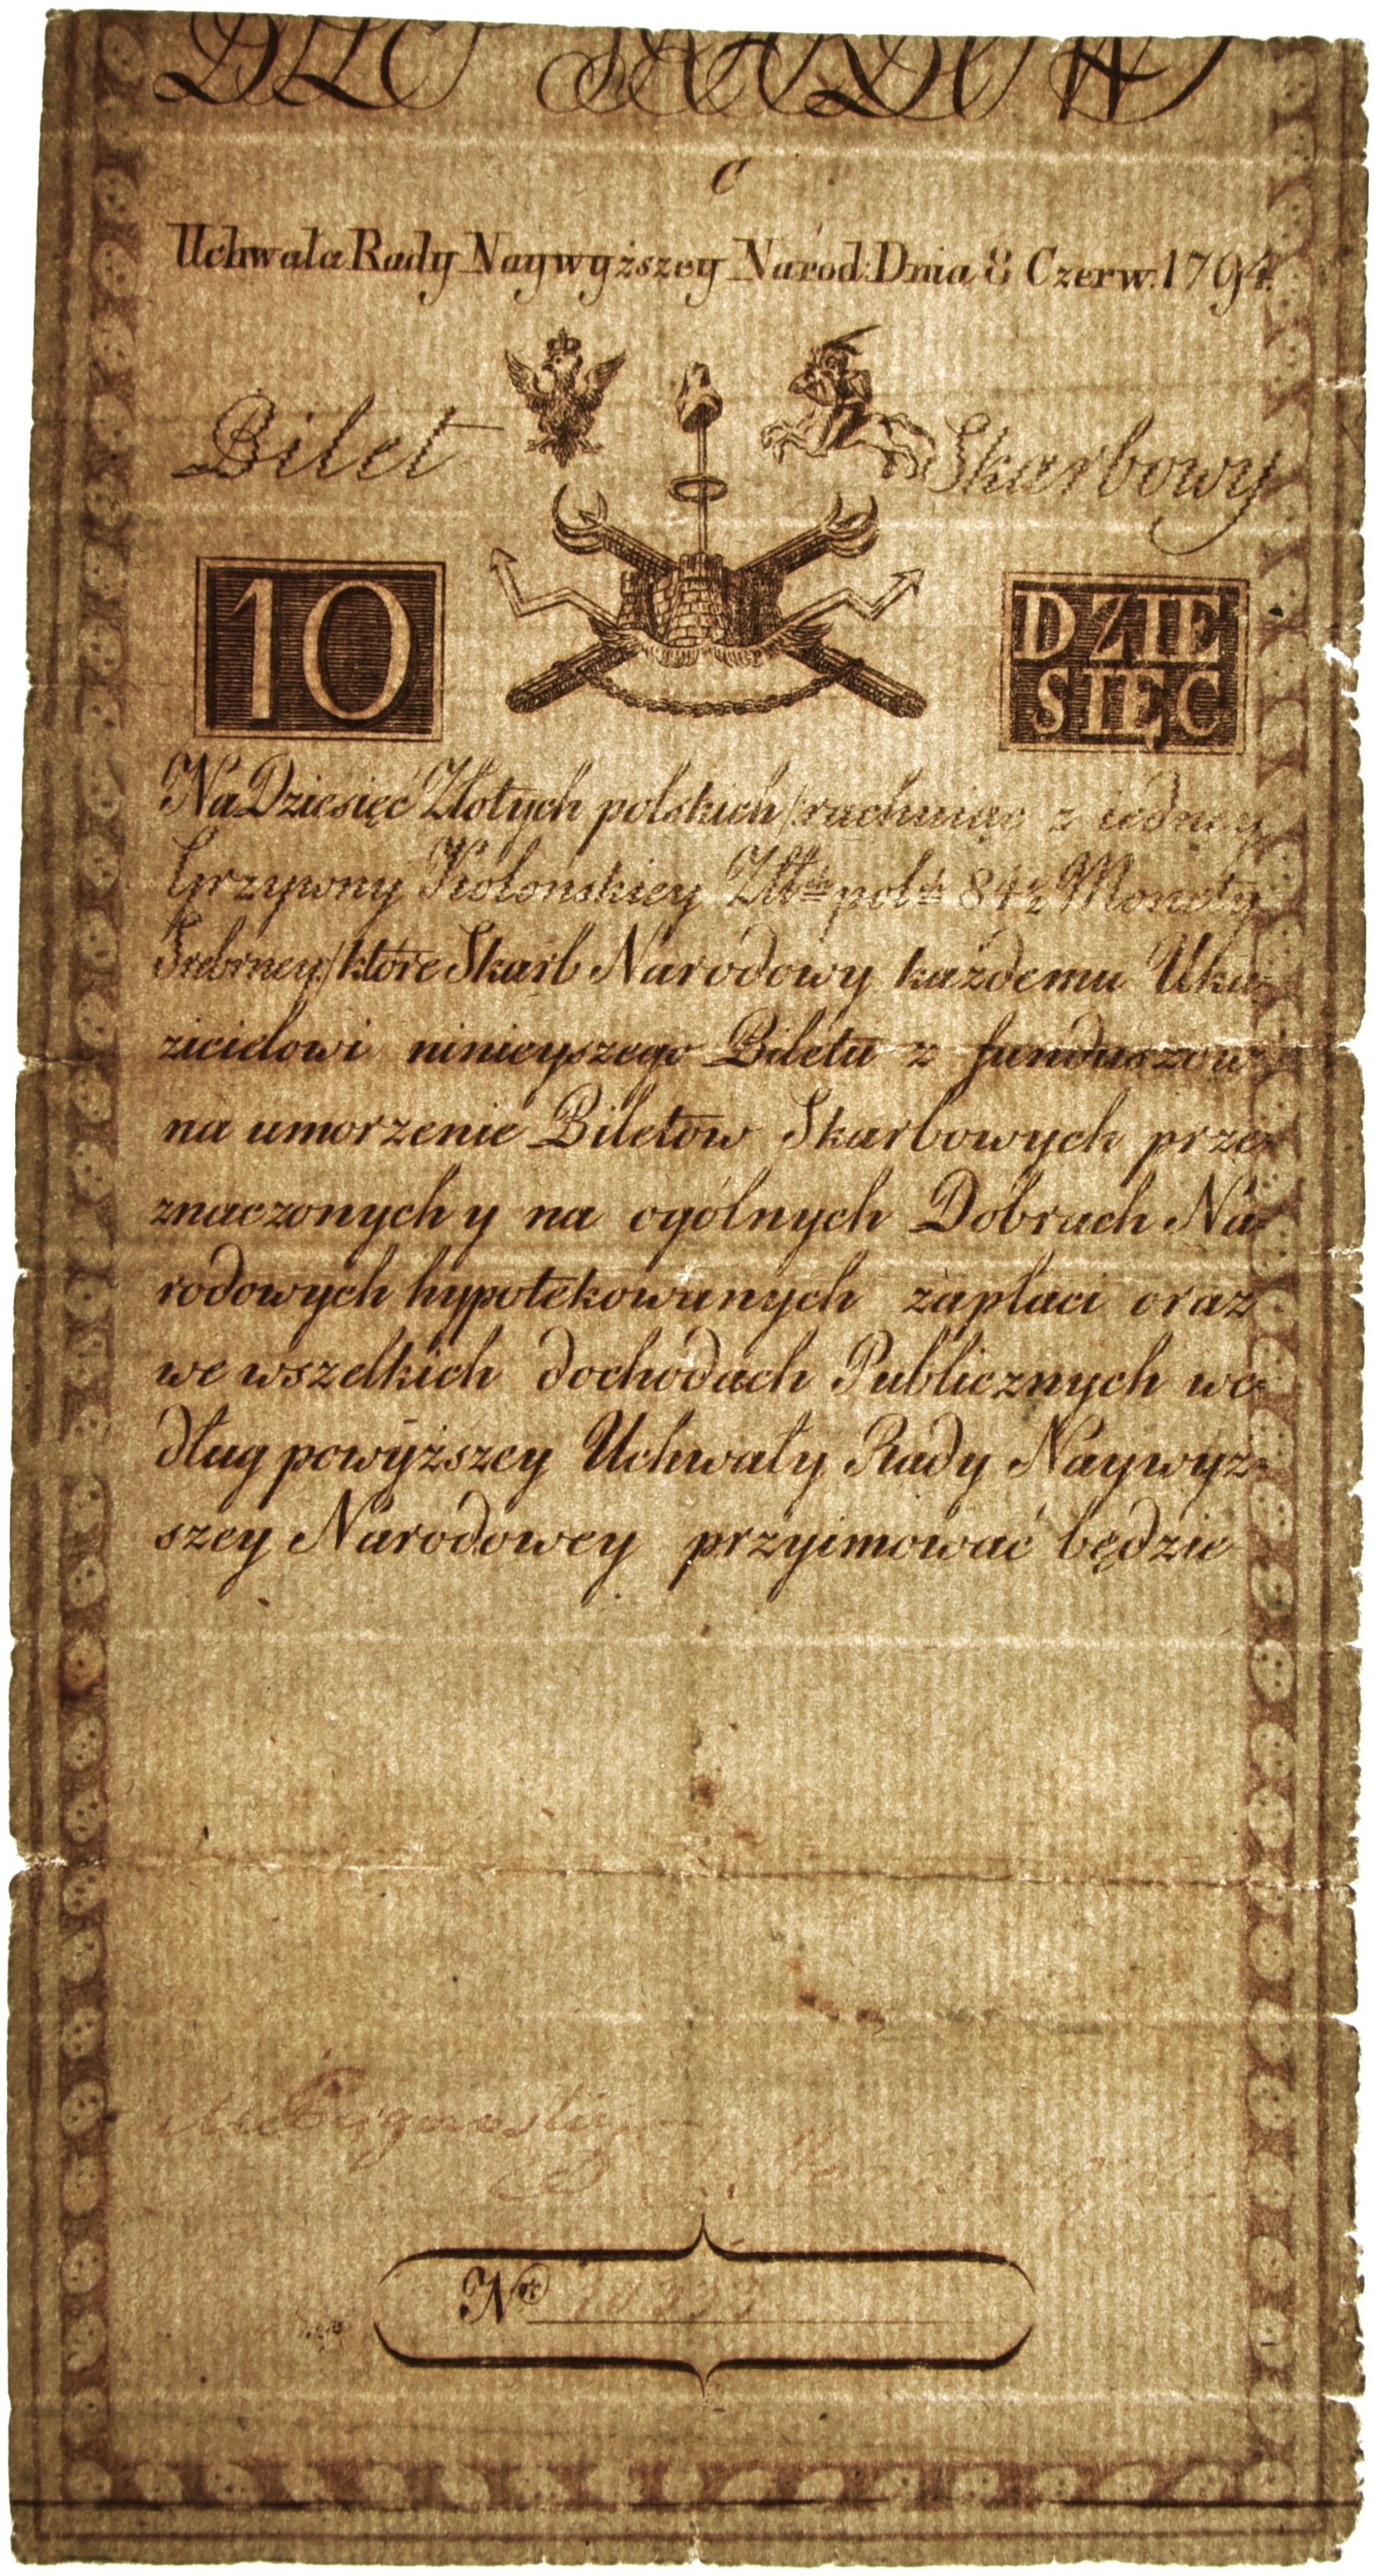 C
Uchwała Rady Naywyższey Narod: Dnia 8 Czerw. 1794.
Bilet Skarbowy
10
DZIE
SIĘC
Na Dziesięć Złotych polskich / rachuiąc z iedney
Grzywny Kolońskiey Złt:ch pol:ch 84½ Monety
Srebrney / które Skarb Narodowy każdemu Uka-
zicielowi ninieyszego Biletu z funduszów
na umorzenie Biletów Skarbowych prze-
znaczonych y na ogólnych Dobrach Na-
rodowych hypotekowanych zapłaci oraz
we wszelkich dochodach Publicznych we-
dług powyższey Uchwały Rady Naywyż-
szey Narodowey przyimować będzie
No